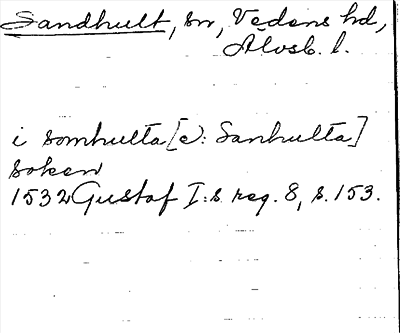 Sandhult, sn, Vedens hd,
Älvsb. l.
i somhulta [ɔ: Sanhulta]
soken
1532 Gustaf I:s reg. 8, s. 153.